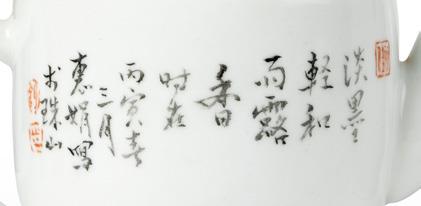 淡墨
輕和
雨露
香
時在
丙寅春
三月
惠娟寫
於珠山